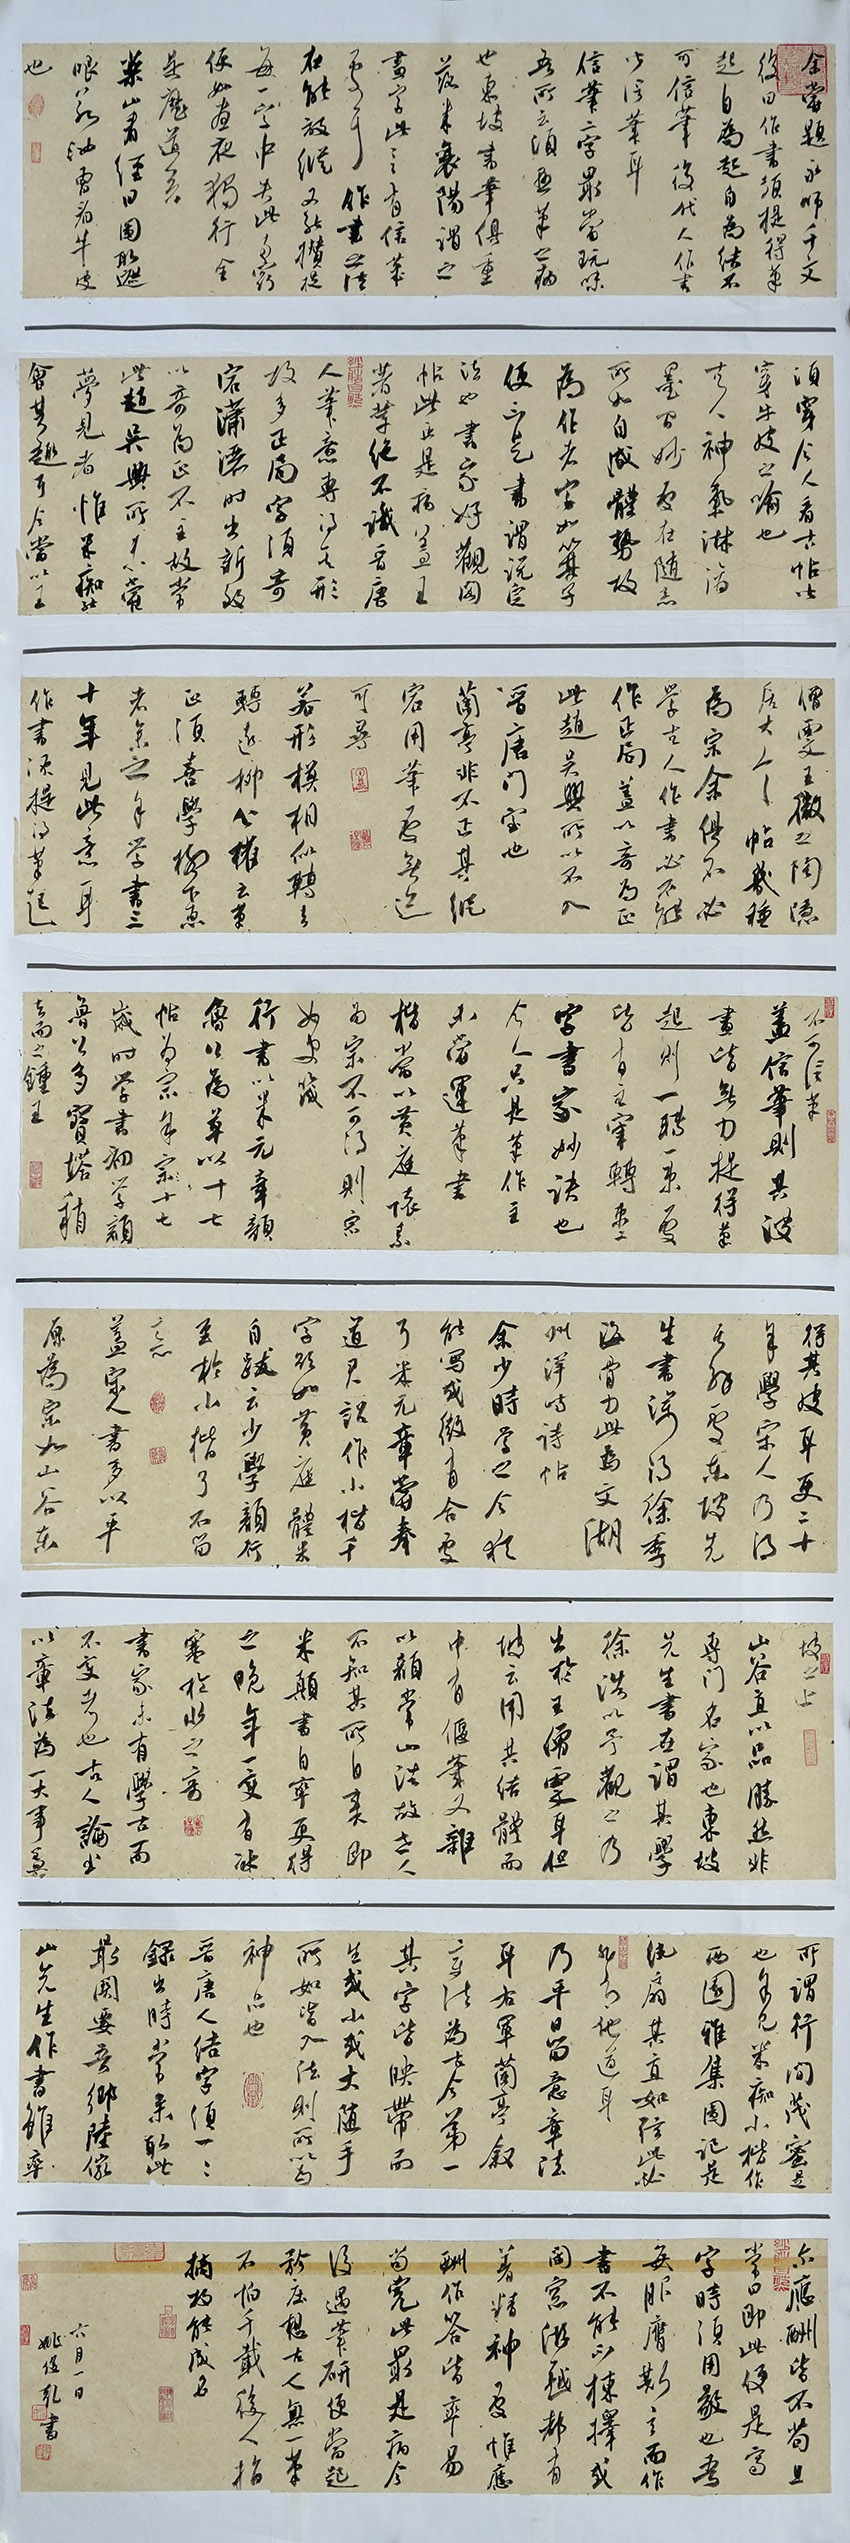 余嘗題永師千文
後曰作書須提得筆
起自為起自為結不
可信筆後代人作書
皆信筆耳
信筆二字最當玩味
吾所云須懸筆之病
也東坡書筆俱重
落米襄陽謂之
畫字此言有信筆
處耳作書之法
在能放縱又能攢捉
每一字中失此兩竅
便如晝夜獨行全
是魔道矣
藥山看經曰圖取遮
眼若汝曹看牛皮
也
須穿今人看古帖皆
穿牛皮之喻也
古人神氣淋漓
墨間妙處在隨意
所如自成體勢故
為作者字如算子
便不是書謂說定
法也書家好觀閣
帖此正是病蓋王
著輩絕不識晉唐
人筆意專得其形
故多正局字須奇
宕瀟灑時出新致
以奇為正不主故常
此趙吳興所未嘗
夢見者惟米癡能
會其趣耳今當以王
僧虔王徽之陶隱
居大令帖幾種
為宗余俱不必
學古人作書必不能
作正局蓋以奇為正
此趙吳興所以不入
晉唐門室也
蘭亭非不正其縱
宕用筆處無跡
可尋
若形模相似轉去
轉遠柳公權云筆
正須善學柳下惠
者參之余學書三
十年見此意耳
作書須提得筆起
不可信筆
蓋信筆則其波
畫皆無力提得筆
起則一轉一束處
皆有主宰轉束二
字書家妙訣也
今人只是筆作主
未嘗運筆書
楷當以黃庭懷素
為宗不可得則宗
女史箴
行書以米元章顏
魯公為草以十七
帖為宗余十七
歲時學書初學顏
魯公多寶塔稍
去而之鍾王
得其皮耳更二十
年學宋人乃得
其解處東坡先
生書深得徐季
海骨力此為文湖
州洋嶼詩帖
余少時學之今猶
能寫或微有合處
耳米元章嘗奉
道君詔作小楷千
字欲如黃庭體米
自跋云少學顏行
至於小楷了不留
意
蓋宋人書多以平
原為宗如山谷東
坡是也
山谷直以品勝然非
專門名家也東坡
先生書世謂其學
徐浩以予觀之乃
出於王僧虔耳但
坡云用其結體而
中有偃筆又雜
以顏常山法故世人
不知其所自來即
米顛書自率更得
之晚年一變有冰
寒於水之奇
書家未有學古而
不變者也古人論書
以章法為一大事蓋
所謂行間茂密是
也余見米癡小楷作
西園雅集圖記是
紈扇其直如弦此必
非有他道耳
乃平日留意章法
耳右軍蘭亭敘
章法為古今第一
其字皆映帶而
生或小或大隨手
所如皆入法則所以為
神品也
晉唐人結字須一二
錄出時常參取此
最關要吾鄉陸儼
山先生作書雖率
爾應酬皆不苟且
常曰即此便是寫
字時須用敬也吾
每服膺斯言而作
書不能不揀擇或
閒窗游戲都有
着精神處惟應
酬作答皆率易
苟完此最是病今
後遇筆研便當起
矜莊想古人無一筆
不怕千載後人指
摘故能成名
六月一日